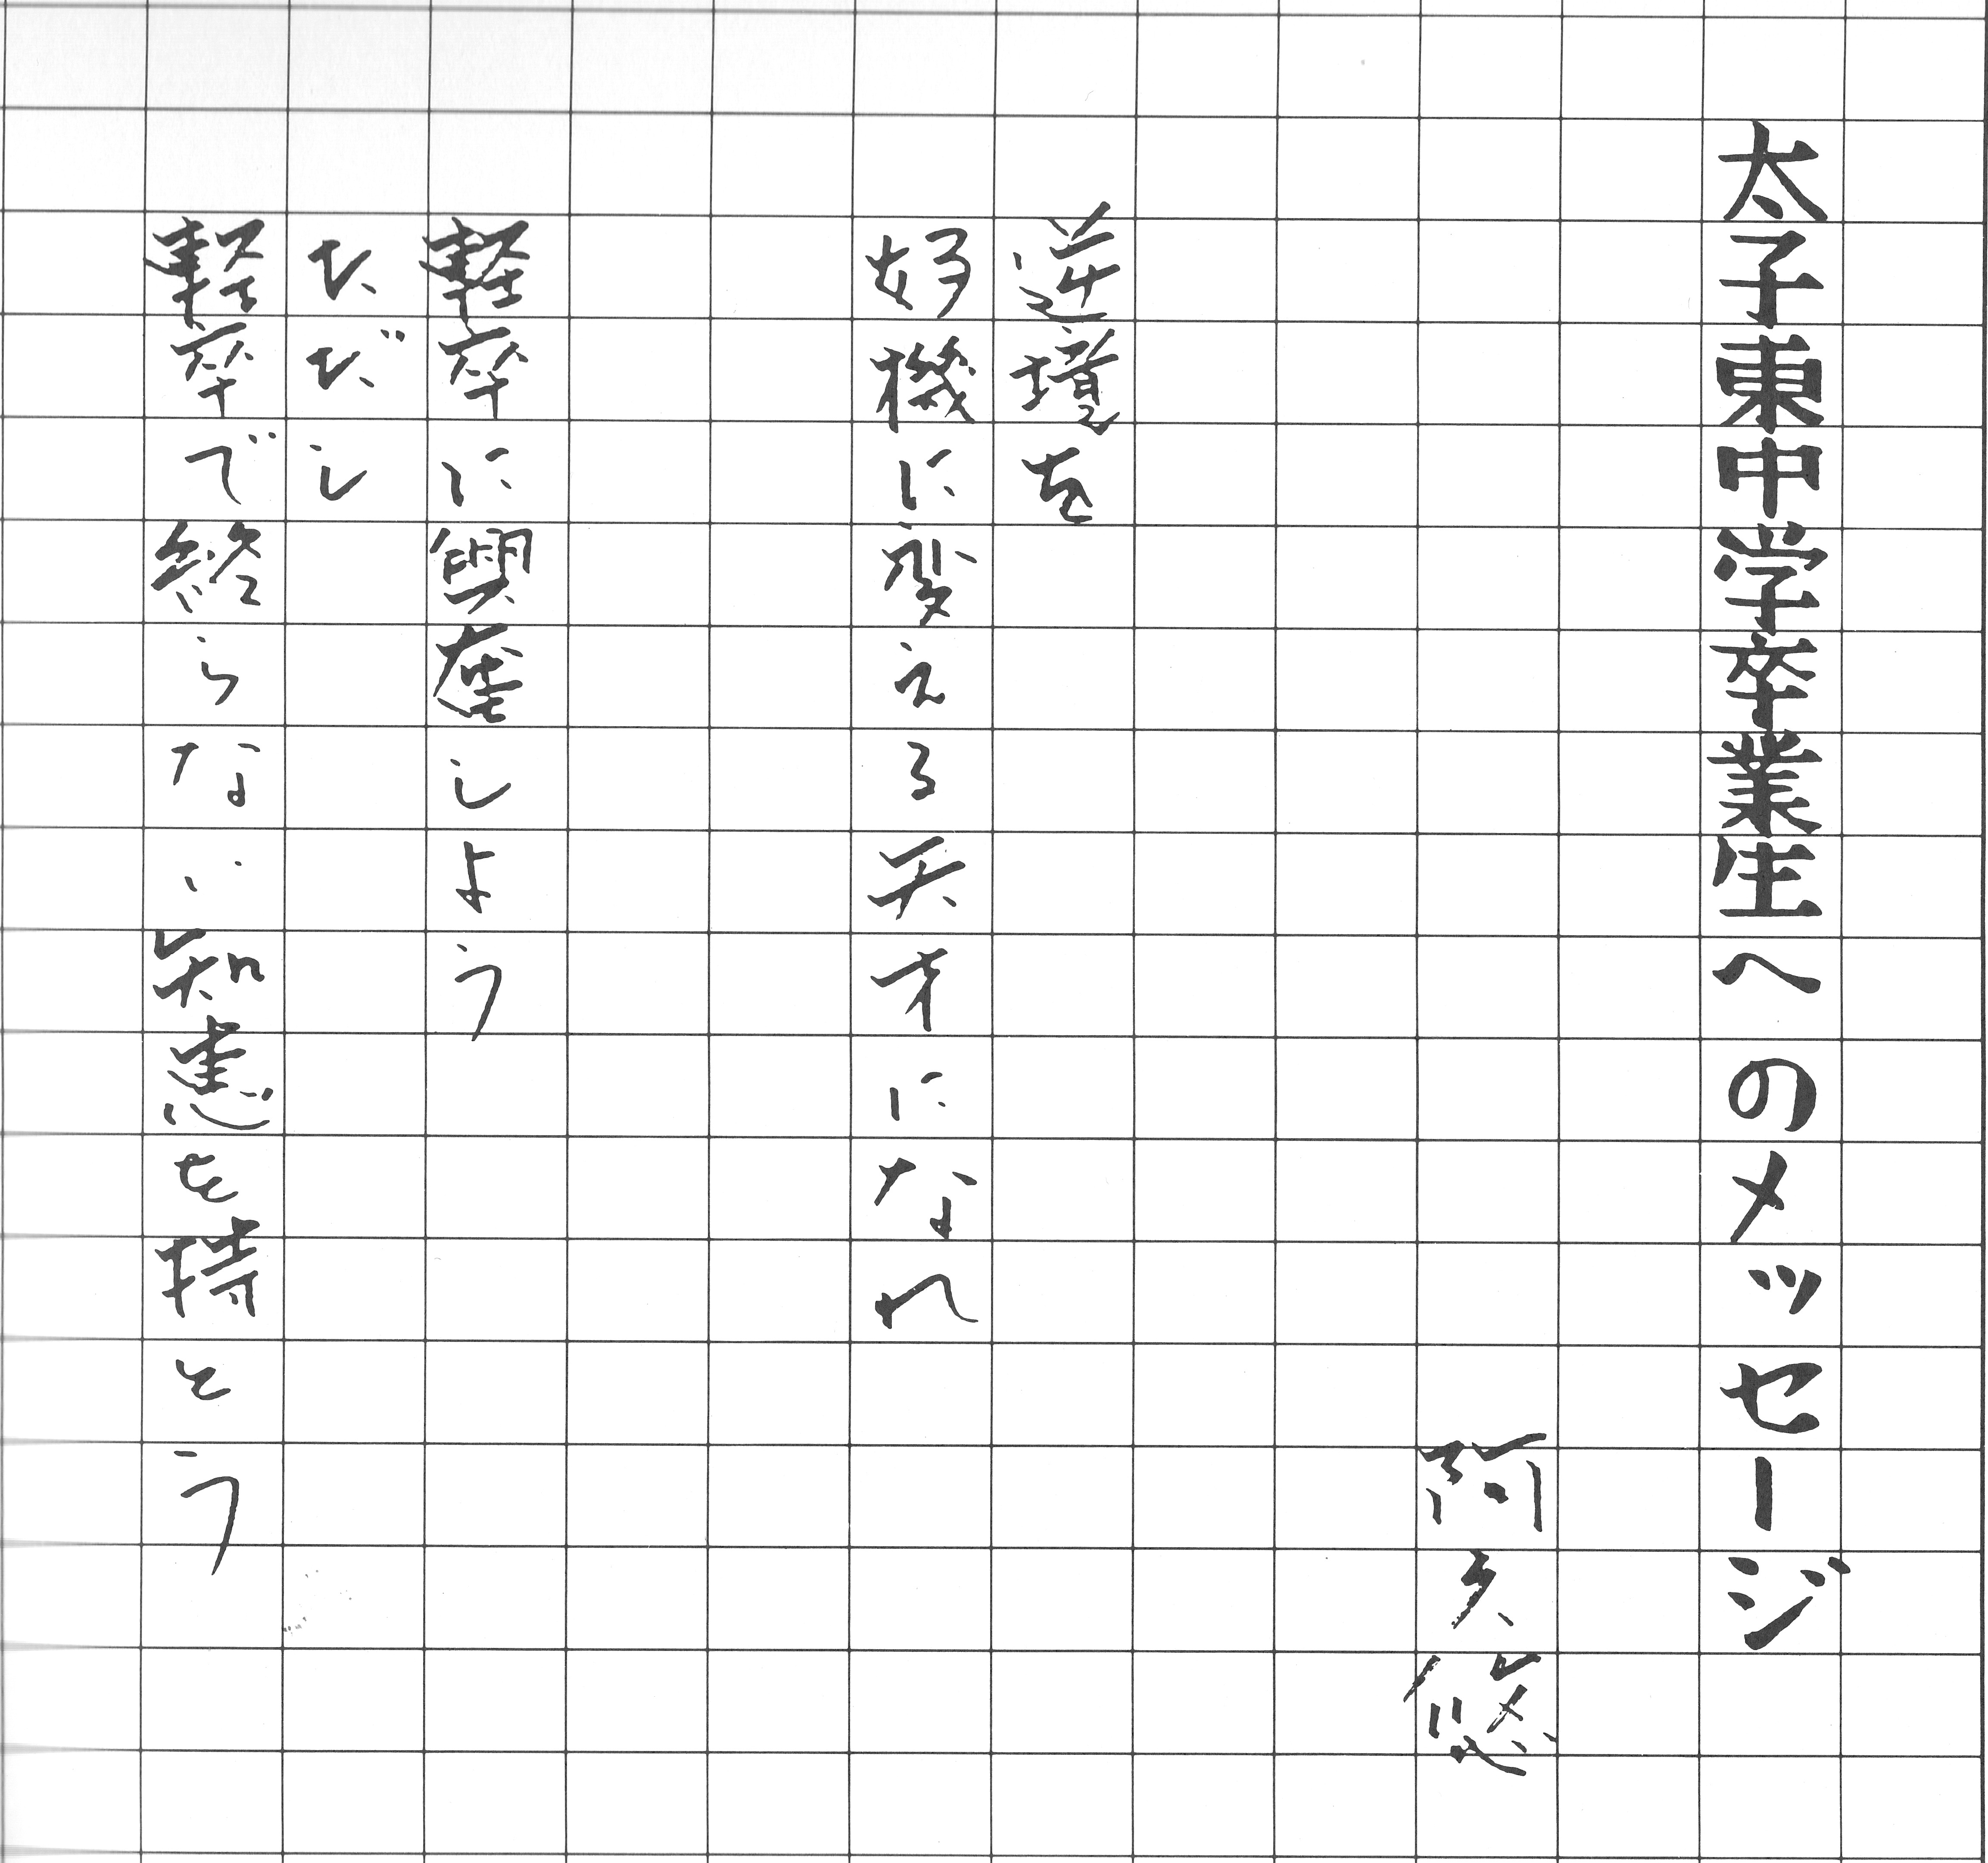 太子東中学卒業生へのメッセージ
阿久悠
逆境を
好機に変える天才になれ
軽卒に興奮しよう
ただし
軽卒で終らない知恵を持とう